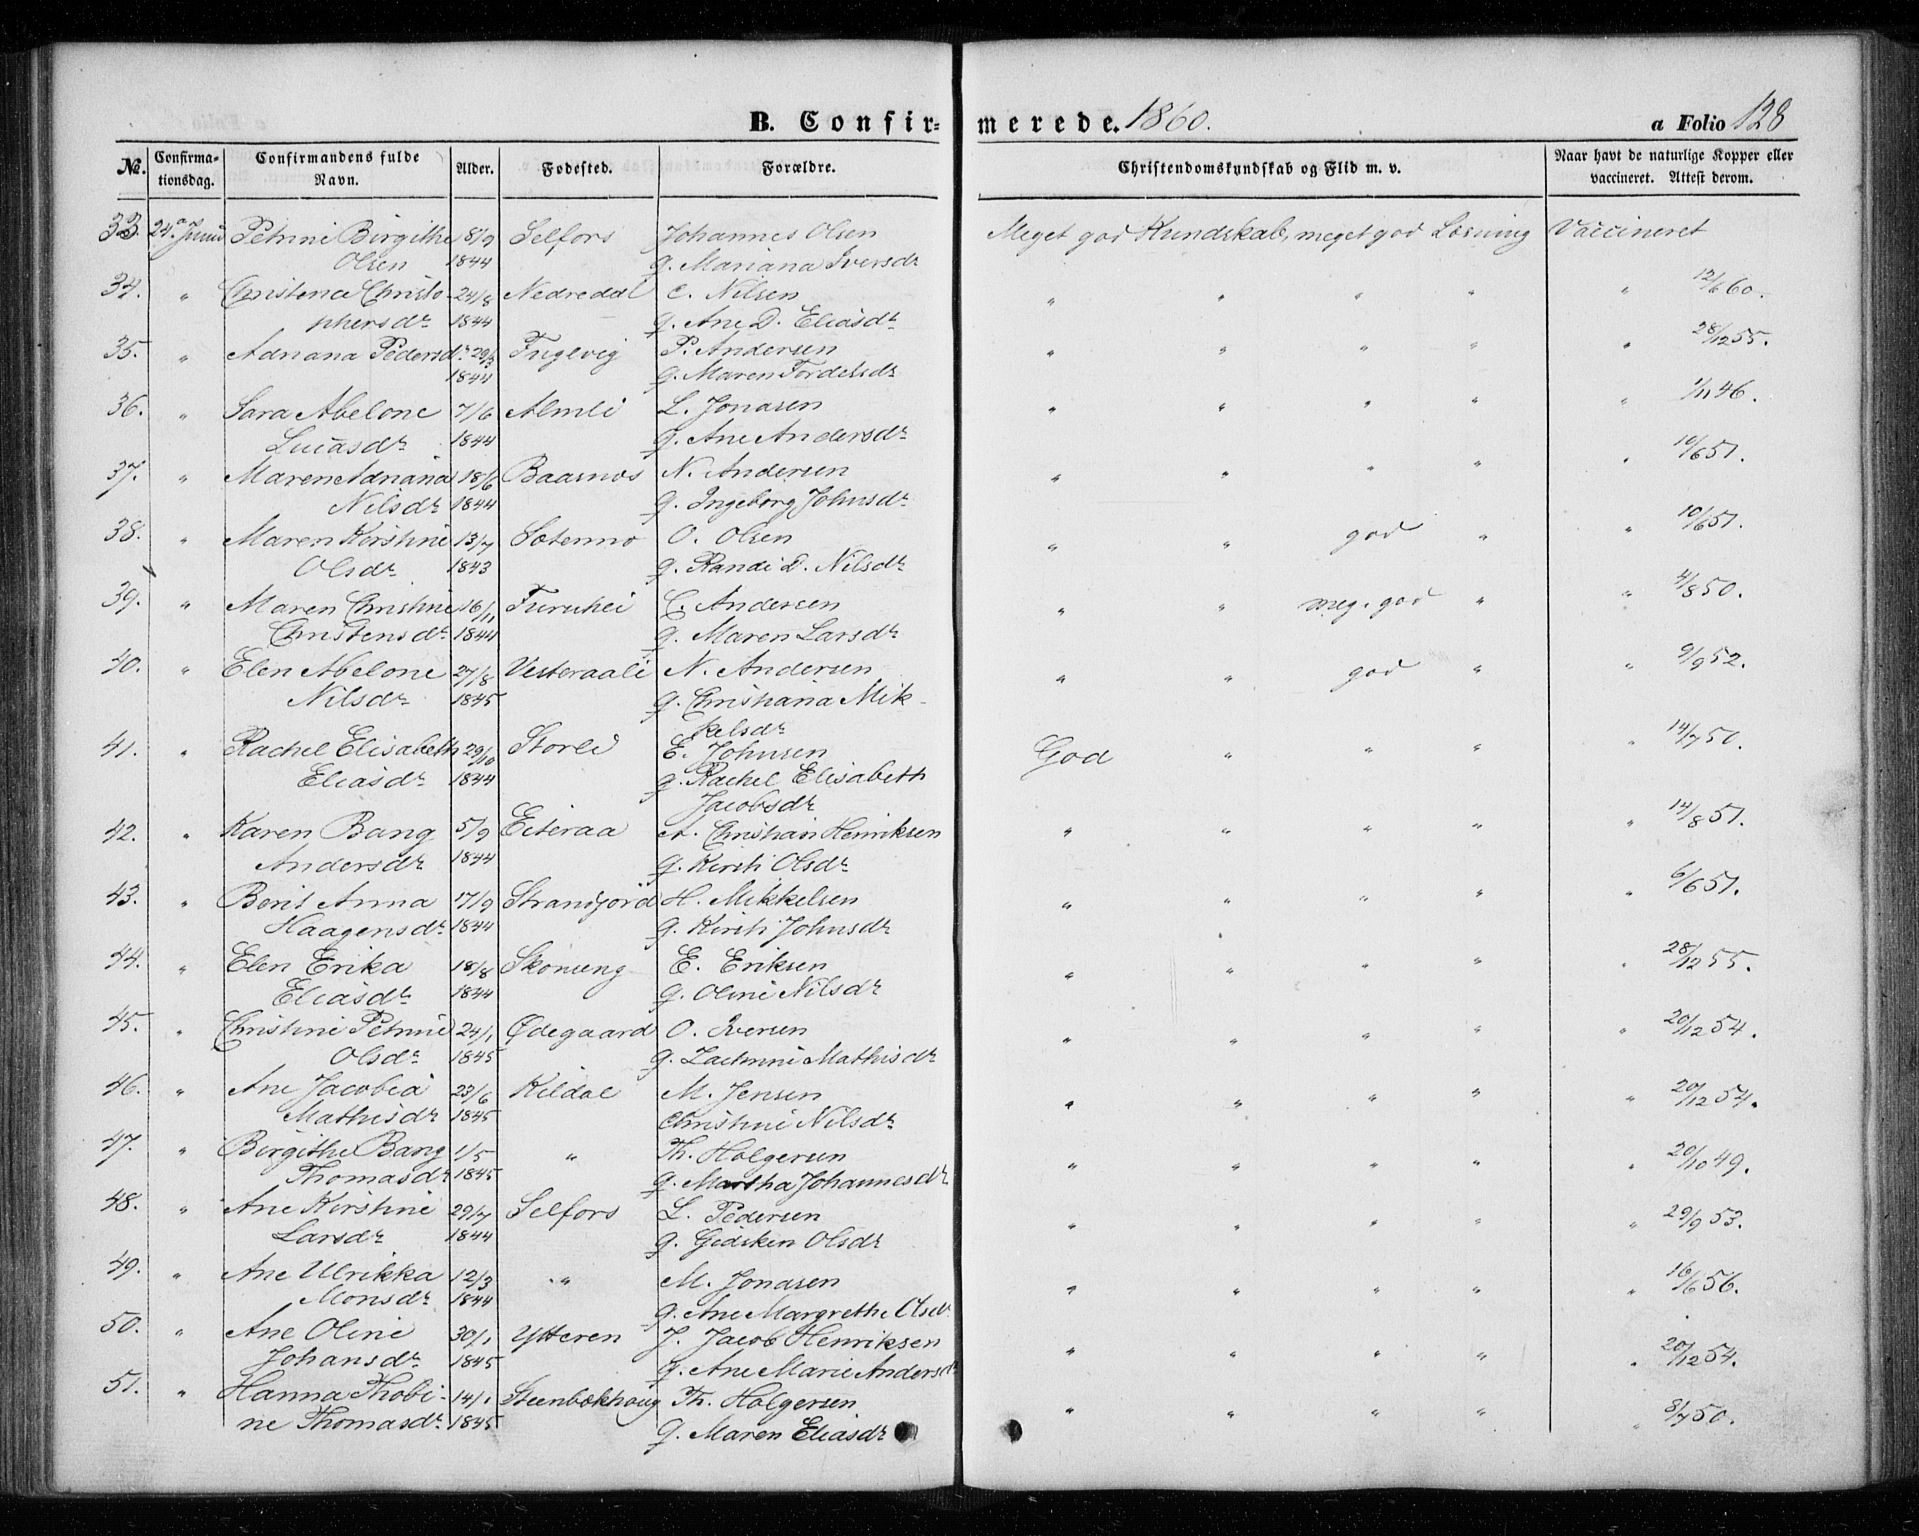 B. Confir-merede. 1860. a Folio 128
No. Confirmationsdag. Confirmandens fulde Navn. Alder. Fødested. Forældre. Christendomskundskab og Flid m. v. Naar havt de naturlige Kopper eller vaccineret. Attest derom.
33. 24de Juni Petrine Birgithe 8/9 Selfors Johannes Olsen Meget god Kundskab, meget god Læsning Vaccineret
Olsen 1844 g. Mariana Iversdr
34. " Christence Christo- 24/8 Nedredal C. Nilsen " " " " " 12/6 60.
phersdr 1844 g. Ane D. Eliasdr
35. " Adriana Pedersdr 29/3 Fuglvig P. Andersen " " " " " 28/12 55.
1844 g. Maren Fordelsdr
36. " Sara Abelone 7/6 Almli L. Jonasen " " " " " 1/11 46.
Lucasdr 1844 g. Ane Andersdr
37. " Maren Adriana 18/6 Baasmos N. Andersen " " " " " 10/6 51.
Nilsdr 1844 g. Ingeborg Johnsdr
38. " Maren Kirstine 13/7 O. Olsen " " god " " 10/6 51.
Olsdr 1843 g. Randi D. Nilsdr
39. " Maren Christine 16/11 Furuhei C. Andersen " " meg. god " " 4/8 50.
Christensdr 1844 g. Maren Larsdr
40. " Elen Abelone 27/8 Vesteraali N. Andersen " " god " " 9/9 52.
Nilsdr 1845 g. Christiana Mik-
kelsdr
41. " Rachel Elisabeth 29/10 Storli E. Johnsen God " " " " 14/7 50.
Eliasdr 1844 g. Rachel Elisabeth
Jacobsdr
42. " Karen Bang 5/9 Eiteraa A. Christian Henriksen " " " " " 14/8 51.
Andersdr 1844 g. Kirsti Olsdr
43. " Berit Anna 17/9 Strandjord H. Mikkelsen " " " " " 6/6 51.
Haagensdr 1844 g. Kirsti Johnsdr
44. " Elen Erika 18/8 Skonseng E. Eriksen " " " " " 28/12 55.
Eliasdr 1844 g. Oline Nilsdr
45. " Christine Petrine 24/1 Ødegaard O. Iversen " " " " " 20/12 54.
Olsdr 1845 g. Mathisdr
46. " Ane Jacobia 23/6 Kildal M. Jensen " " " " " 20/12 54.
Mathisdr 1845 Christine Nilsdr
47. " Birgithe Bang 1/5 " Th. Holgersen " " " " " 20/10 49.
Thomasdr 1845 g. Martha Johannesdr
48. " Ane Kirstine 29/7 Selfors L. Pedersen " " " " " 29/9 53.
Larsdr 1844 g. Gidsken Olsdr
49. " Ane Ulrikka 12/3 " M. Jonasen " " " " " 16/6 56.
Monsdr 1844 g. Ane Margrethe Olsdr
50. " Ane Oline 30/1 Ytteren J. Jacob Henriksen " " " " " 20/12 54.
Johansdr 1845 g. Ane Marie Andersdr
51. " Hanna Thobi- 14/1 Steenbækhaug Th. Holgersen " " " " " 8/7 50.
ne Thomasdr 1845 g. Maren Eliasdr